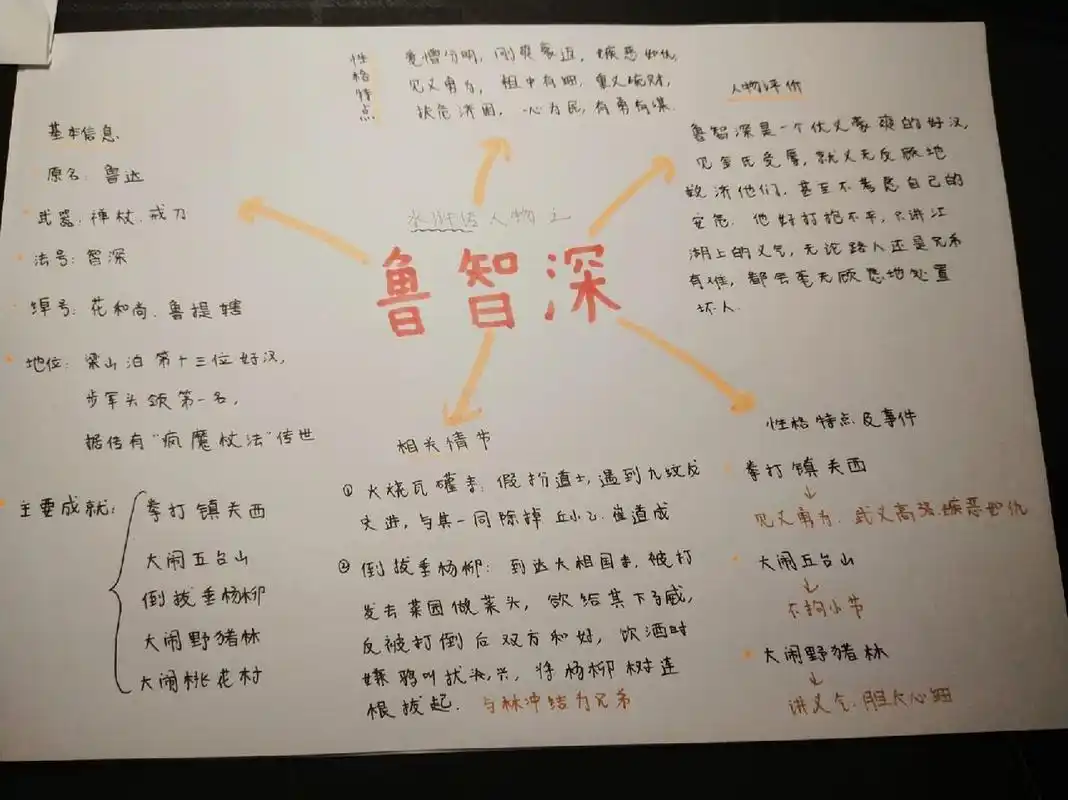 水浒传人物之
鲁智深
性格特点
爱憎分明，刚爽豪迈，嫉恶如仇，
见义勇为，粗中有细，重义疏财，
扶危济困，一心为民，有勇有谋.
人物评价
鲁智深是一个仗义豪爽的好汉，
见金氏受辱，就义无反顾地
救济他们，甚至不考虑自己的
安危. 他好打抱不平，只讲江
湖上的义气，无论路人还是兄弟
有难，都会毫无顾虑地处置
坏人.
基本信息
原名：鲁达
武器：禅杖、戒刀
法号：智深
绰号：花和尚、鲁提辖
地位：梁山泊第十三位好汉，
步军头领第一名，
据传有“疯魔杖法”传世
主要成就：
拳打镇关西
大闹五台山
倒拔垂杨柳
大闹野猪林
大闹桃花村
相关情节
① 火烧瓦罐寺：假扮道士，遇到九纹龙
史进，与其一同除掉丘小乙、崔道成
② 倒拔垂杨柳：到达大相国寺，被打
发去菜园做菜头，欲给其下马威，
反被打倒后双方和好，饮酒时
嫌鸦叫扰兴，将杨柳树连
根拔起. 与林冲结为兄弟
性格特点及事件
拳打镇关西
见义勇为、武义高强、嫉恶如仇
大闹五台山
不拘小节
大闹野猪林
讲义气、胆大心细